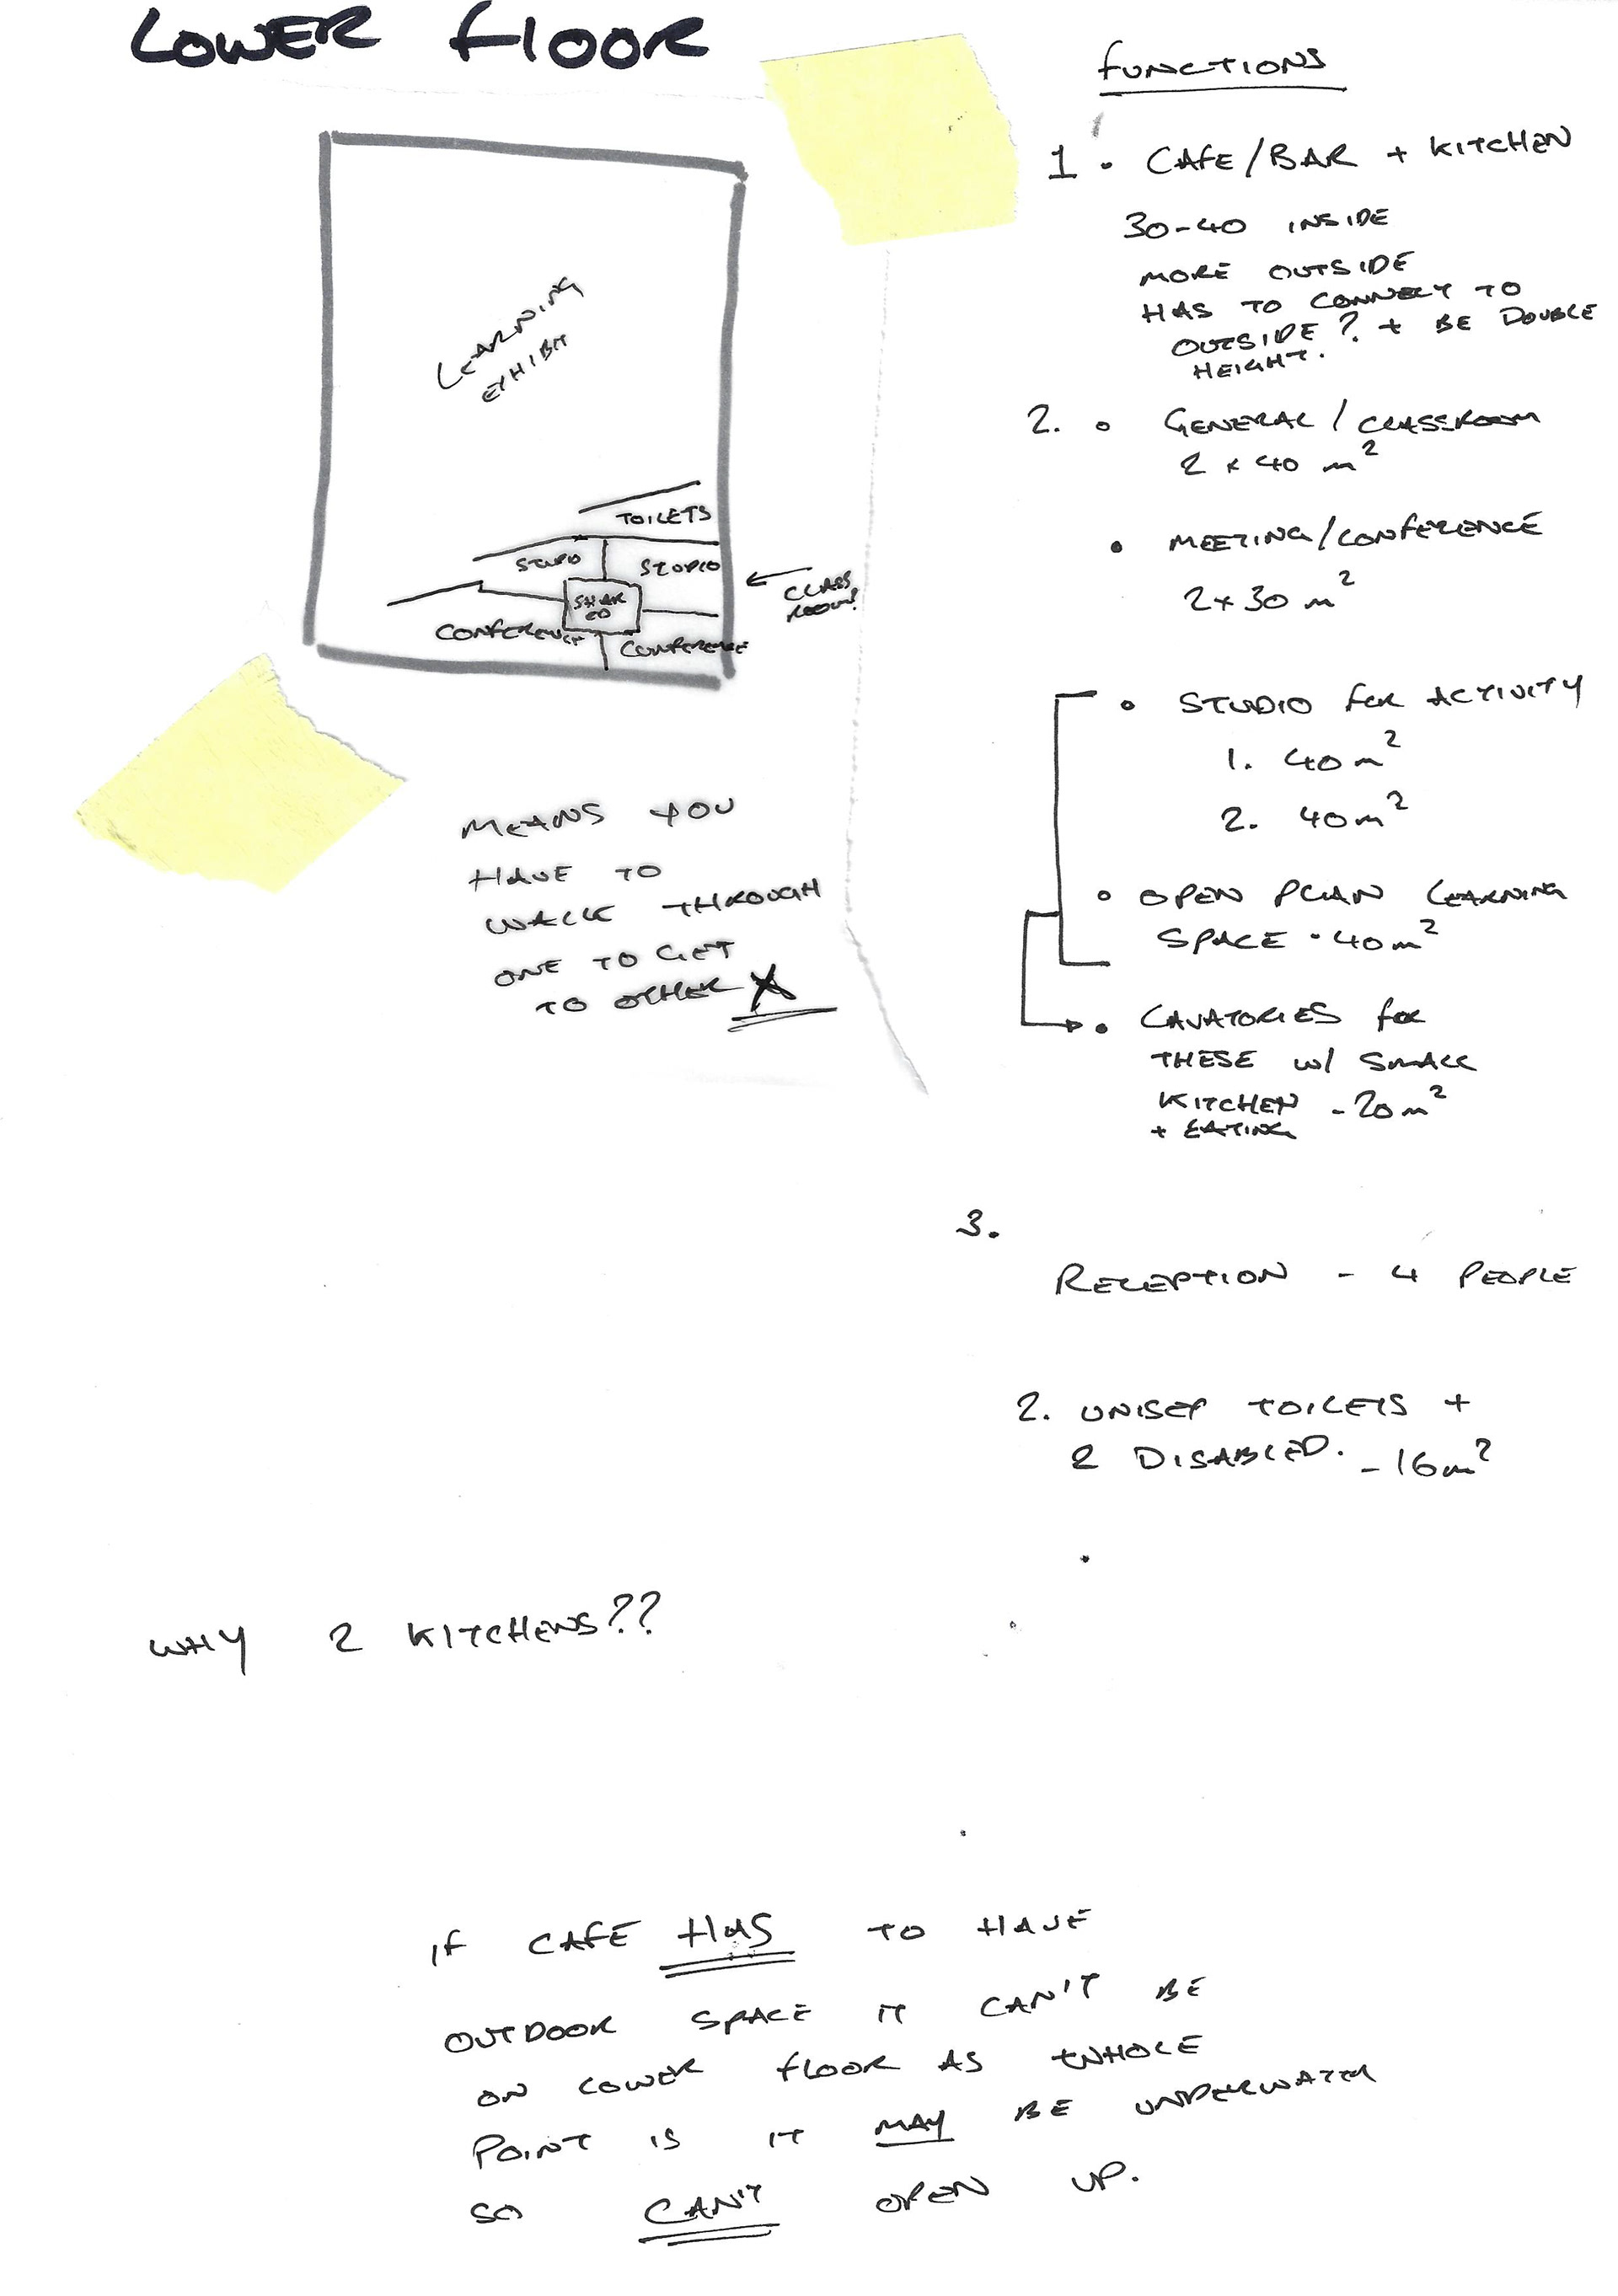 LOWER FLOOR
LEARNING
EXHIBIT
TOILETS
STUDIO
STUDIO
SHAR
ED
CONFERENCE
CONFERENCE
CLASS
ROOM?
MEANS YOU
HAVE TO
WALK THROUGH
ONE TO GET
TO OTHER X
FUNCTIONS
1 • CAFE/BAR + KITCHEN
30-40 INSIDE
MORE OUTSIDE
HAS TO CONNECT TO
OUTSIDE? + BE DOUBLE
HEIGHT.
2. • GENERAL / CLASSROOM
2 x 40 m²
• MEETING/CONFERENCE
2 x 30 m²
• STUDIO FOR ACTIVITY
1. 40m²
2. 40m²
• OPEN PLAN LEARNING
SPACE - 40m²
• LAVATORIES FOR
THESE w/ SMALL
KITCHEN - 20m²
+ EATING
3.
RECEPTION - 4 PEOPLE
2. UNISEX TOILETS +
2 DISABLED. - 16m²
WHY 2 KITCHENS??
IF CAFE HAS TO HAVE
OUTDOOR SPACE IT CAN'T BE
ON LOWER FLOOR AS WHOLE
POINT IS IT MAY BE UNDERWATER
SO CAN'T OPEN UP.